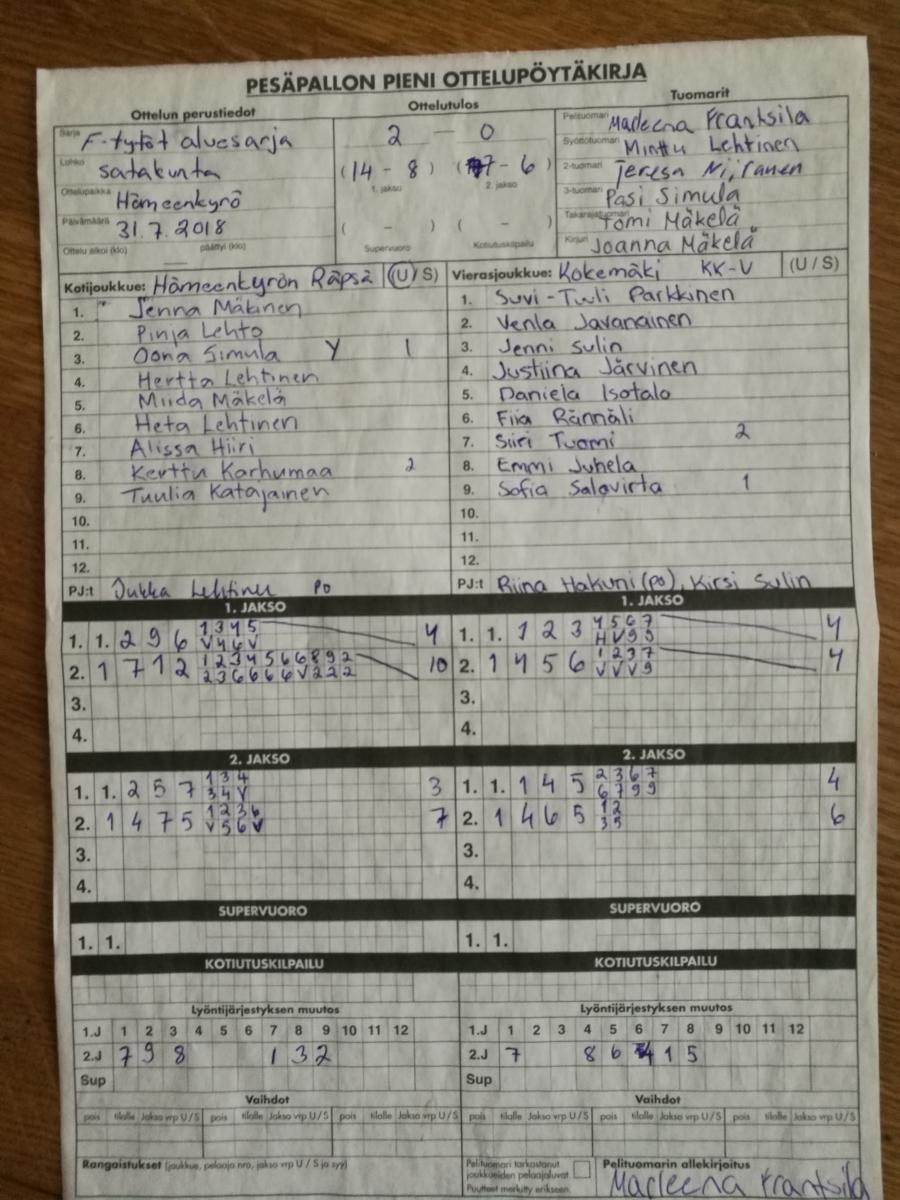 PESÄPALLON PIENI OTTELUPÖYTÄKIRJA
Ottelun perustiedot
Ottelutulos
Tuomarit
Sarja F-tytöt aluesarja
Lohko satakunta
Ottelupaikka Hämeenkyrö
Päivämäärä 31.7.2018
Ottelu alkoi (klo) päättyi (klo)
2 - 0
(14 - 8) (7 - 6)
1. jakso 2. jakso
( - ) ( - )
Supervuoro Kotiutuskilpailu
Pelituomari Marleena Frantsila
Syöttötuomari Minttu Lehtinen
2-tuomari Teresa Niiranen
3-tuomari Pasi Simula
Takarajatuomari Tomi Mäkelä
Kirjuri Joanna Mäkelä
Kotijoukkue: Hämeenkyrön Räpsä (U/S)
1. Jenna Mäkinen
2. Pinja Lehto
3. Oona Simula Y 1
4. Hertta Lehtinen
5. Miida Mäkelä
6. Heta Lehtinen
7. Alissa Hiiri
8. Kerttu Karhumaa 2
9. Tuulia Katajainen
10.
11.
12.
PJ:t Jukka Lehtinen PO
Vierasjoukkue: Kokemäki KK-V (U/S)
1. Suvi-Tuuli Parkkinen
2. Venla Javanainen
3. Jenni Sulin
4. Justiina Järvinen
5. Daniela Isotalo
6. Fiia Rännäli
7. Siiri Tuomi 2
8. Emmi Juhela
9. Sofia Salovirta 1
10.
11.
12.
PJ:t Riina Hakuni (PO), Kirsi Sulin
1. JAKSO
1. 1. 2 9 6 1 3 4 5 4
V 4 6 V
2. 1 7 1 2 1 2 3 4 5 6 6 8 9 2 10
2 3 6 6 6 6 V 2 2 2
3.
4.
1. JAKSO
1. 1. 1 2 3 4 5 6 7 4
H V 9 9
2. 1 4 5 6 1 2 3 7 4
V V V 9
3.
4.
2. JAKSO
1. 1. 2 5 7 1 3 4 3
3 4 V
2. 1 4 7 5 1 2 3 6 7
V 5 6 V
3.
4.
2. JAKSO
1. 1. 1 4 5 2 3 6 7 4
6 7 9 9
2. 1 4 6 5 1 2 6
3 5
3.
4.
SUPERVUORO
1. 1.
SUPERVUORO
1. 1.
KOTIUTUSKILPAILU
KOTIUTUSKILPAILU
Lyöntijärjestyksen muutos
1.J 1 2 3 4 5 6 7 8 9 10 11 12
2.J 7 9 8 1 3 2
Sup
Lyöntijärjestyksen muutos
1.J 1 2 3 4 5 6 7 8 9 10 11 12
2.J 7 8 6 4 1 5
Sup
Vaihdot
pois tilalle Jakso vrp U/S pois tilalle Jakso vrp U/S pois tilalle Jakso vrp U/S
Vaihdot
pois tilalle Jakso vrp U/S pois tilalle Jakso vrp U/S pois tilalle Jakso vrp U/S
Rangaistukset (joukkue, pelaaja nro, jakso vrp U / S ja syy)
Pelituomari tarkastanut
joukkueiden pelaajaluvat.
Puutteet merkitty erikseen.
Pelituomarin allekirjoitus
Marleena Frantsila